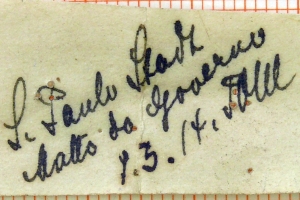 S. Paulo Stadt
Matto do Governo
8.3.14.